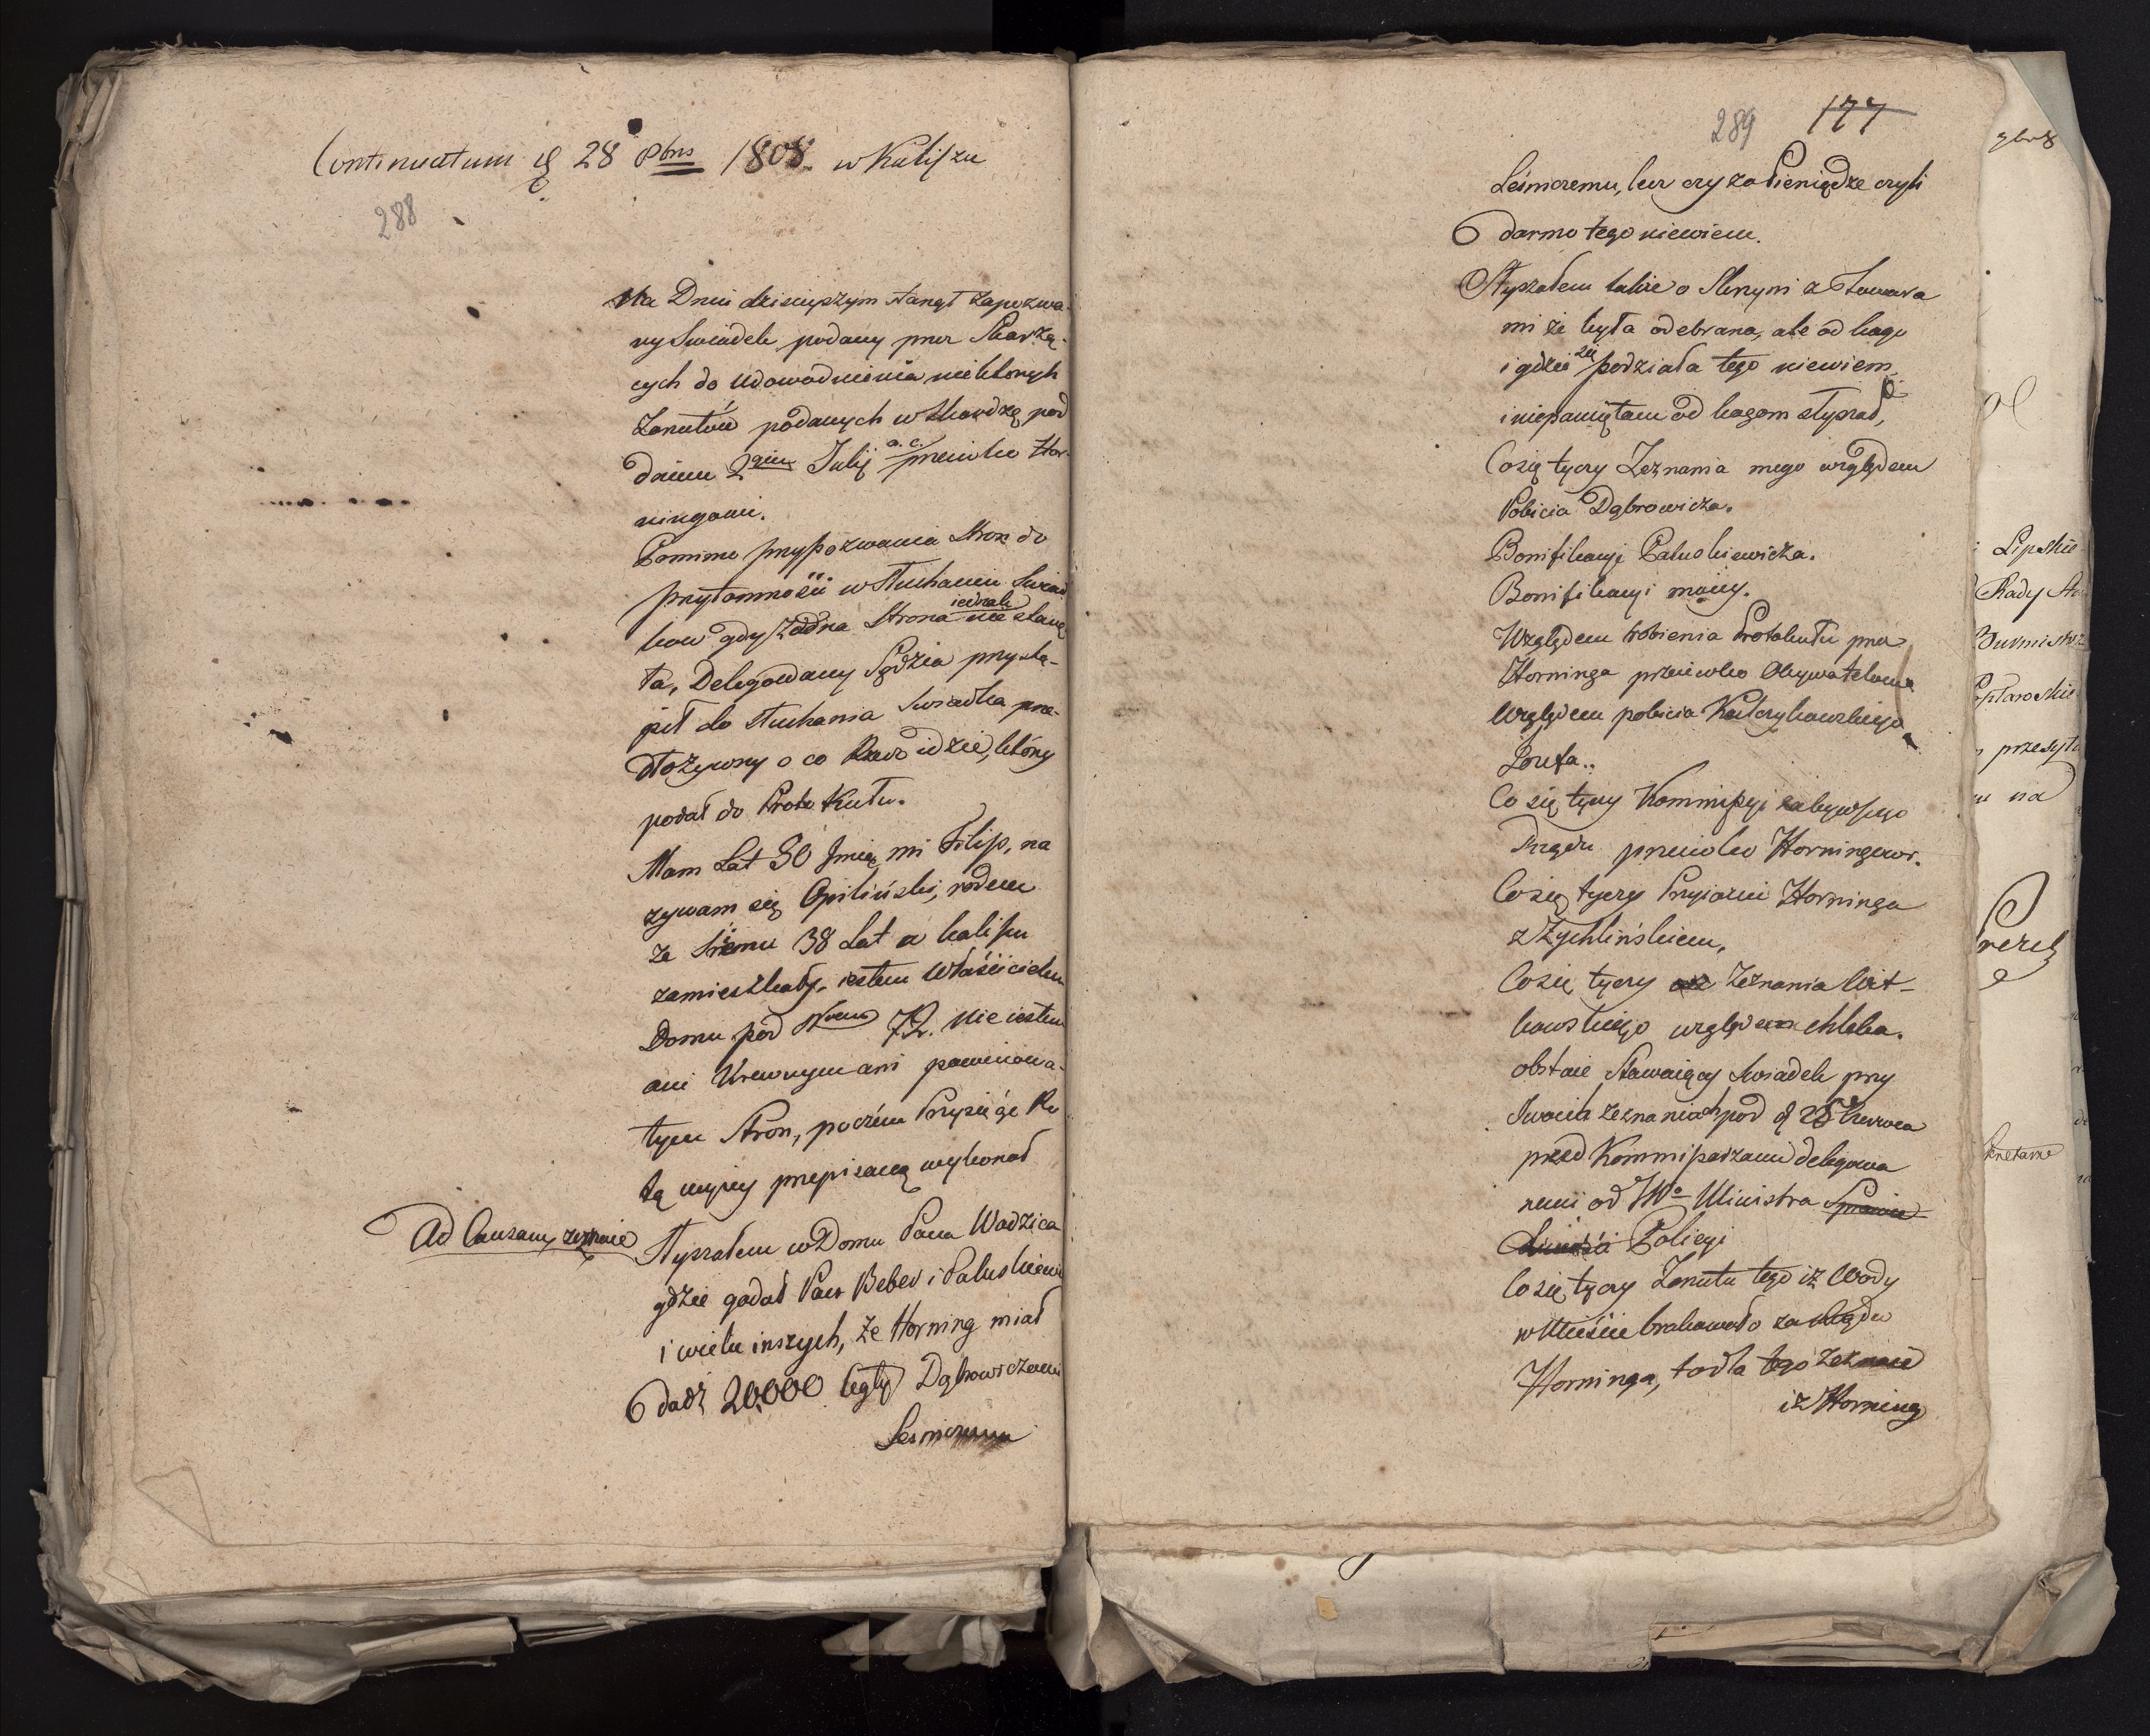 Continuatum d 28 8bris 1808 w Kaliszu
288
Na Dniu dzisieyszym stanął zapozwa-
ny Swiadek podany przez Skarżą-
cych do udowodnienia niektorych
Zarutów podanych w Skardze pod
dniem 2gim Julij a. c. przeciwko Hor-
ningowi.
Pomimo przypozwania Stron do
przytomności w słuchaniu Swiad
kow gdy żadna Strona iednak nie stanę
ła, Delegowany Sędzia przystą-
pił do słuchania Swiadka prze-
łożywszy o co Rzecz idzie, który
podał do Protokułu.
Mam Lat 50 Jmię mi Filip, na
zywam się Opiliński, rodem
ze Śremu 38 Lat w Kaliszu
zamieszkały, iestem Właścicielem
Domu pod Nrem 72. nie iestem
ani Krewnym ani powinowa-
tym Stron, poczém Przysięgę Ro
tą wyżey przepisaną wykonał
Ad Causam zeznaie
Słyszałem w Domu Pana Wadzica
gdzie gadał Pan Beber i Paluskiewi
i wielu inszych, że Horning miał
dadź 20,000 Cegły Dąbrowiczowi
Leśniczemu
289
177
Leśniczemu, lecz czy za Pieniądze czyli
darmo tego niewiem.
Słyszałem także o Skrzyni z Towara
mi że była odebrana, ale od kogo
i gdzie się podziała tego niewiem
i niepamiętam od kogom słyszał,
Co się tyczy Zeznania mego względem
Pobicia Dąbrowicza.
Bonifikacyi Paluskiewicza.
Bonifikacyi moiey.
Względem robienia Protokułu przez
Horninga przeciwko Obywatelowi
względem pobicia Kaczykowskiego
Józefa..
Co się tyczy Kommissyi zabywszego
Rządu przeciwko Horningowi.
Co się tyczy Przyiazni Horninga
z Zychlińskiem,
Co się tyczy Zeznania Wit-
kowskiego względem chleba.
obstaie Stawaiący Swiadek przy
Swoich zeznaniach pod d 25 Czerwca
przed Kommissarzami delegowa
nemi od JWo Ministra
Policyi
Co się tyczy Zarutu tego iż Wody
w Mieście brakowało za Rządu
Horninga, to dla tego zeznaie
iż Horning
Lipskie
Rady
Burmistrz
przesyła
na